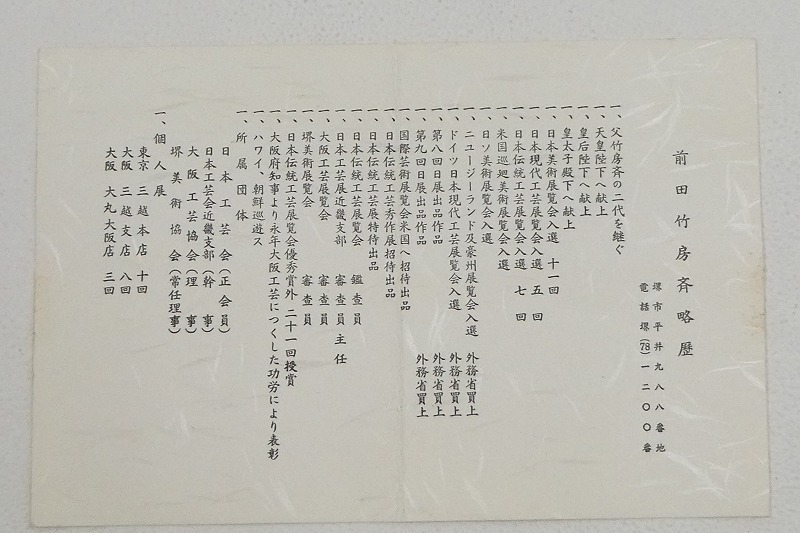 前田竹房斉略歴
堺市平井九八八番地
電話堺(78)一二〇〇番
一、父竹房斉の二代を継ぐ
一、天皇陛下へ献上
一、皇后陛下へ献上
一、皇太子殿下へ献上
一、日本美術展覧会入選 十一回
一、日本現代工芸展覧会入選 五回
一、日本伝統工芸展覧会入選 七回
一、米国巡廻美術展覧会入選
一、日ソ美術展覧会入選
一、ニュージーランド及豪州展覧会入選 外務省買上
一、ドイツ日本現代工芸展覧会入選 外務省買上
一、第八回日展出品作品 外務省買上
一、第九回日展出品作品 外務省買上
一、国際芸術展覧会米国へ招待出品
一、日本伝統工芸秀作展招待出品
一、日本伝統工芸展特待出品
一、日本伝統工芸展覧会 鑑査員
一、日本工芸展近畿支部 審査員主任
一、大阪工芸展覧会 審査員
一、堺美術展覧会 審査員
一、日本伝統工芸展覧会優秀賞外 二十一回授賞
一、大阪府知事より永年大阪工芸につくした功労により表彰
一、ハワイ、朝鮮巡遊ス
一、所属団体
日本工芸会(正会員)
日本工芸会近畿支部(幹事)
大阪工芸協会(理事)
堺美術協会(常任理事)
一、個人展
東京 三越本店 十回
大阪 三越支店 八回
大阪 大丸大阪店 三回